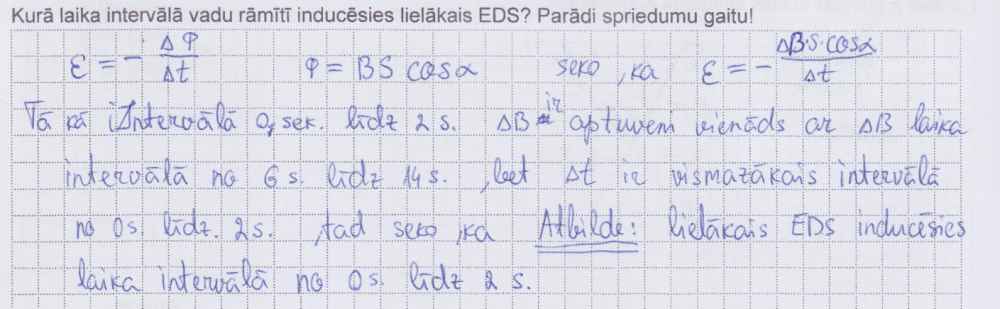 Kurā laika intervālā vadu rāmītī inducēsies lielākais EDS? Parādi spriedumu gaitu!
ε = - ΔΦ/Δt Φ = BS cosα seko, ka ε = - ΔB·S·cosα/Δt
Tā kā intervālā 0, sek. līdz 2 s. ΔB ir aptuveni vienāds ar ΔB laika
intervālā no 6 s. līdz 14 s., bet Δt ir vismazākais intervālā
no 0s. līdz. 2s. , tad seko, ka Atbilde: lielākais EDS inducēsies
laika intervālā no 0s. līdz 2 s.